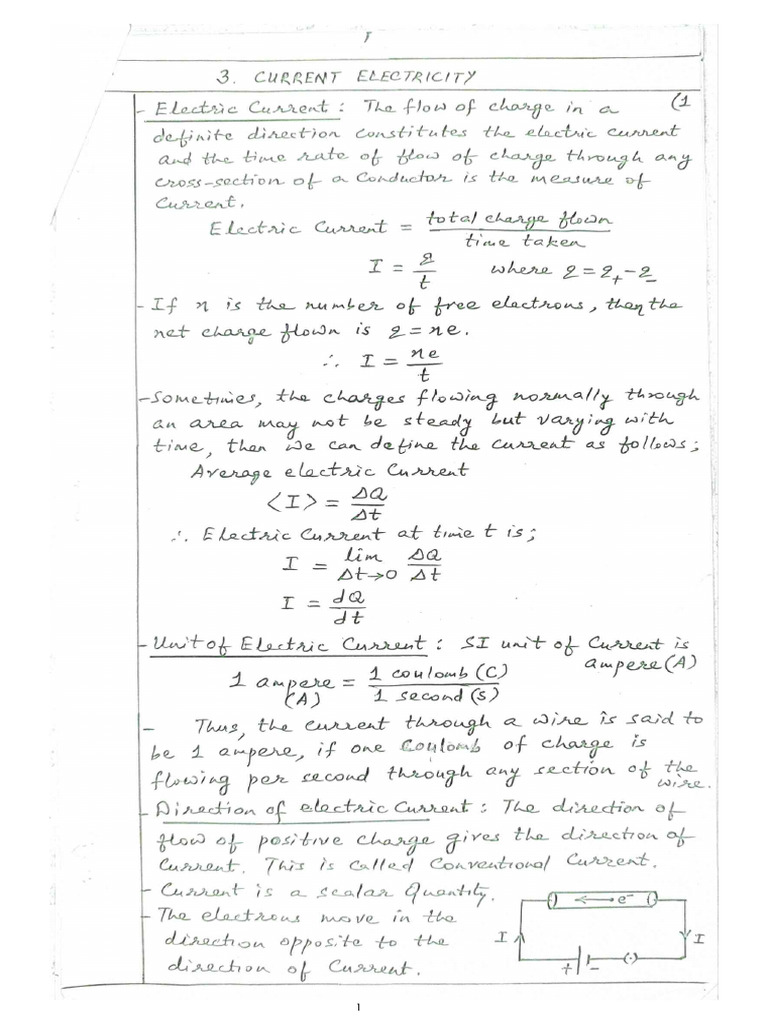 3. CURRENT ELECTRICITY
- Electric Current : The flow of charge in a (1
definite direction constitutes the electric current
and the time rate of flow of charge through any
cross-section of a conductor is the measure of
current.
Electric Current = total charge flown / time taken
I = q/t where q = q₊ - q₋
- If n is the number of free electrons, then the
net charge flown is q = ne.
∴ I = ne/t
- Sometimes, the charges flowing normally through
an area may not be steady but varying with
time, then we can define the current as follows;
Average electric current
⟨I⟩ = ΔQ/Δt
∴ Electric Current at time t is;
I = lim Δt→0 ΔQ/Δt
I = dQ/dt
- Unit of Electric Current : SI unit of Current is
ampere (A)
1 ampere (A) = 1 coulomb (C) / 1 second (s)
- Thus, the current through a wire is said to
be 1 ampere, if one coulomb of charge is
flowing per second through any section of the
wire.
- Direction of electric Current : The direction of
flow of positive charge gives the direction of
current. This is called Conventional Current.
- Current is a scalar Quantity.
- The electrons move in the
direction opposite to the
direction of Current.
e⁻
I I
+ -
1